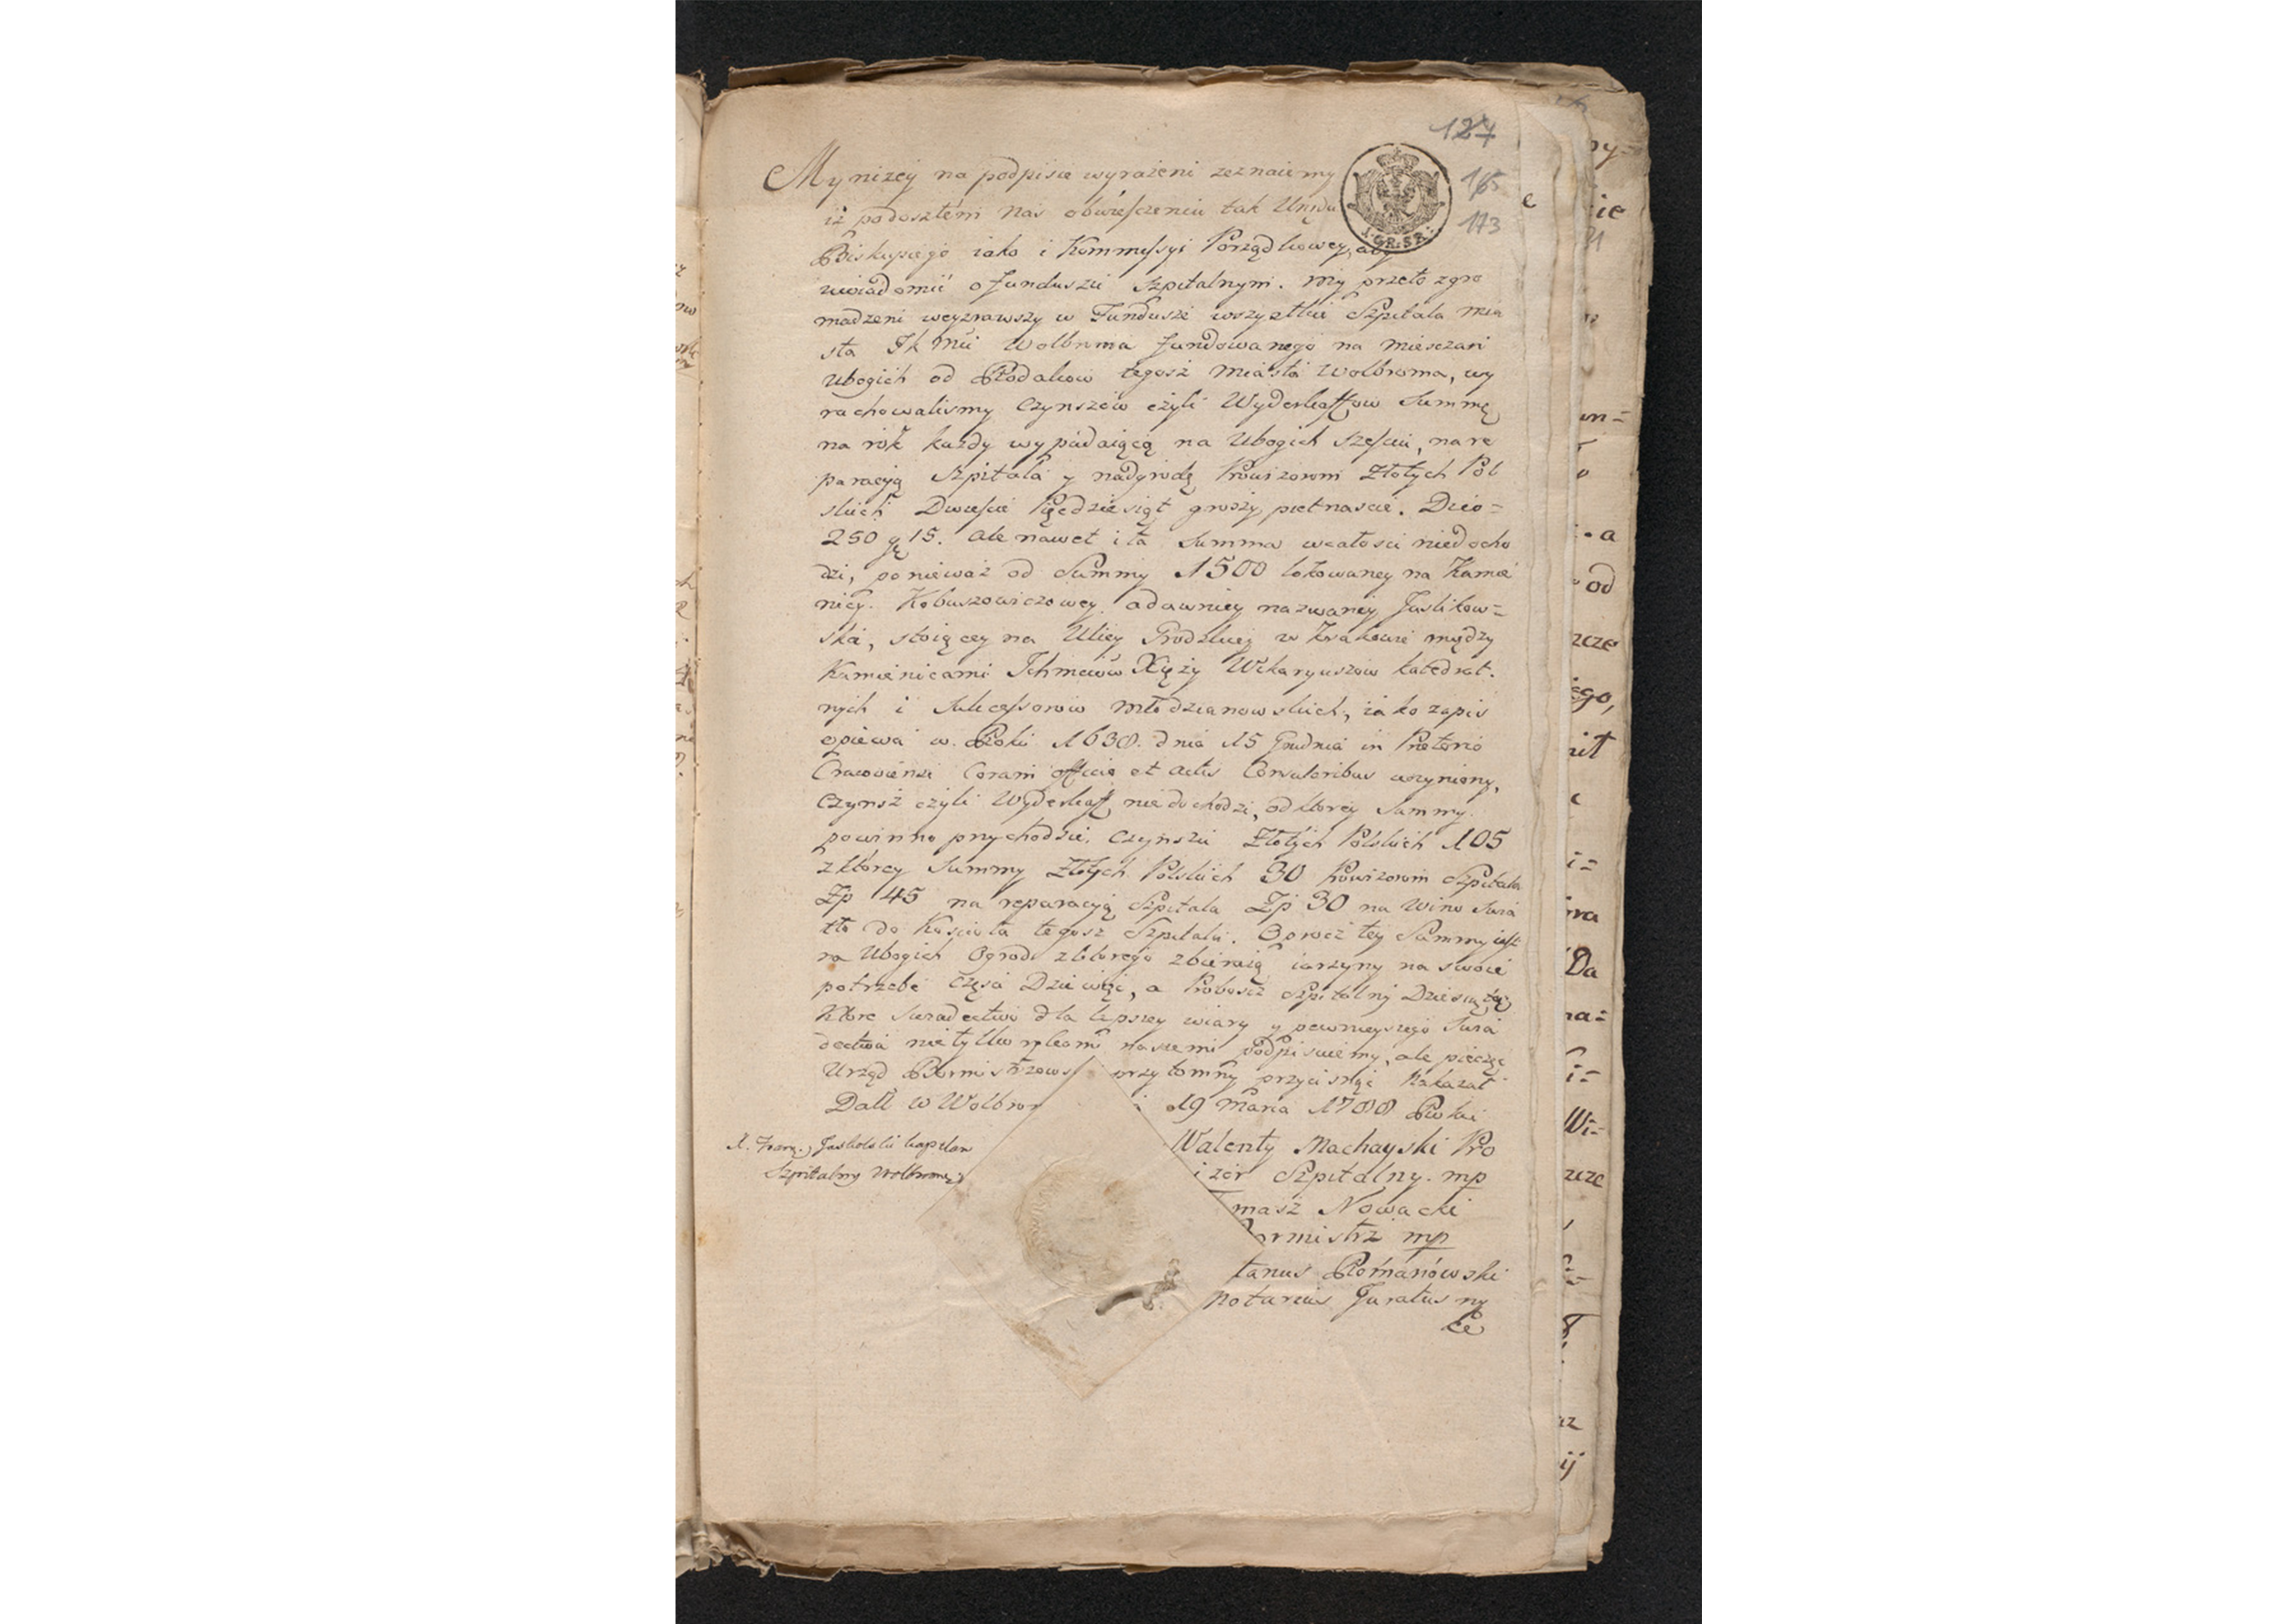 127
165
173
1. GR. SR.
My nizey na podpisie wyrazeni zeznaiemy
iż podoszłem Nas obwieszczeniu tak Urzędu
Biskupiego iako i Kommyssyi Porządkowey, aby
uwiadomić o funduszu szpitalnym. My przeto zgro
madzeni weyzrawszy w Fundusze wszystkie Szpitala mia
sta Wolbroma fundowanego na mieszczan
ubogich od Rodakow tegosz Miasta Wolbroma, wy
rachowalismy Czynszów czyli Wyderkaffow Summę
na rok każdy wypadaiącą na Ubogich sześciu, na re
paracyą Szpitala y nadgrodę Prowizorom Złotych Pol
skich Dwieście Pięćdziesiąt groszy pietnascie. Dico =
250 gr 15. ale nawet i ta summa wcałosci niedocho
dzi, ponieważ od Summy 1500 lokowaney na Kamie
nicy Kobuszowiczowey adawniey nazwaney Juslikow=
ska, stoiącey na Ulicy Grodzkiey w Krakowie między
Kamienicami Ichmciow Xięży Wikaryuszow katedral.
nych i Sukcessorow Młodzianowskich, iako zapis
opiewa w Roku 1638. dnia 15 Grudnia in Pretorio
Cracoviensi Coram officio et actis Consularibus uczyniony,
Czynsz czyli Wyderkaff niedochodzi, od ktorey Summy
powinno przychodzić Czynszu Złotych Polskich 105
z ktorey Summy Złotych Polskich 30 Prowizorom Szpitala
Zp 45 na reparacyą Szpitala Zp 30 na Wino swia
tło do Koscioła tegosz Szpitala. Oprocz tey Summy iest
na Ubogich Ogrod z ktorego zbieraią iarzyny na swoie
potrzebe Częsci Dziewięć, a Proboszcz Szpitalny Dziesiątą
Ktore swiadectwo dla lepszey wiary y pewnieyszego swia
dectwa nietylko rękami naszemi podpisuiemy, ale pieczęć
Urząd Burmistrzows przytomny przycisnąć Nakazał
Datt w Wolbrom 19 Marca 1788 Roku
X. Franc. Juskolski kapelan
Szpitalny Wolbromsi
Walenty Machayski Pro
izor Szpitalny. mp
masz Nowacki
ormistrz mp
tanus Romanowski
Notarius Juratus mp